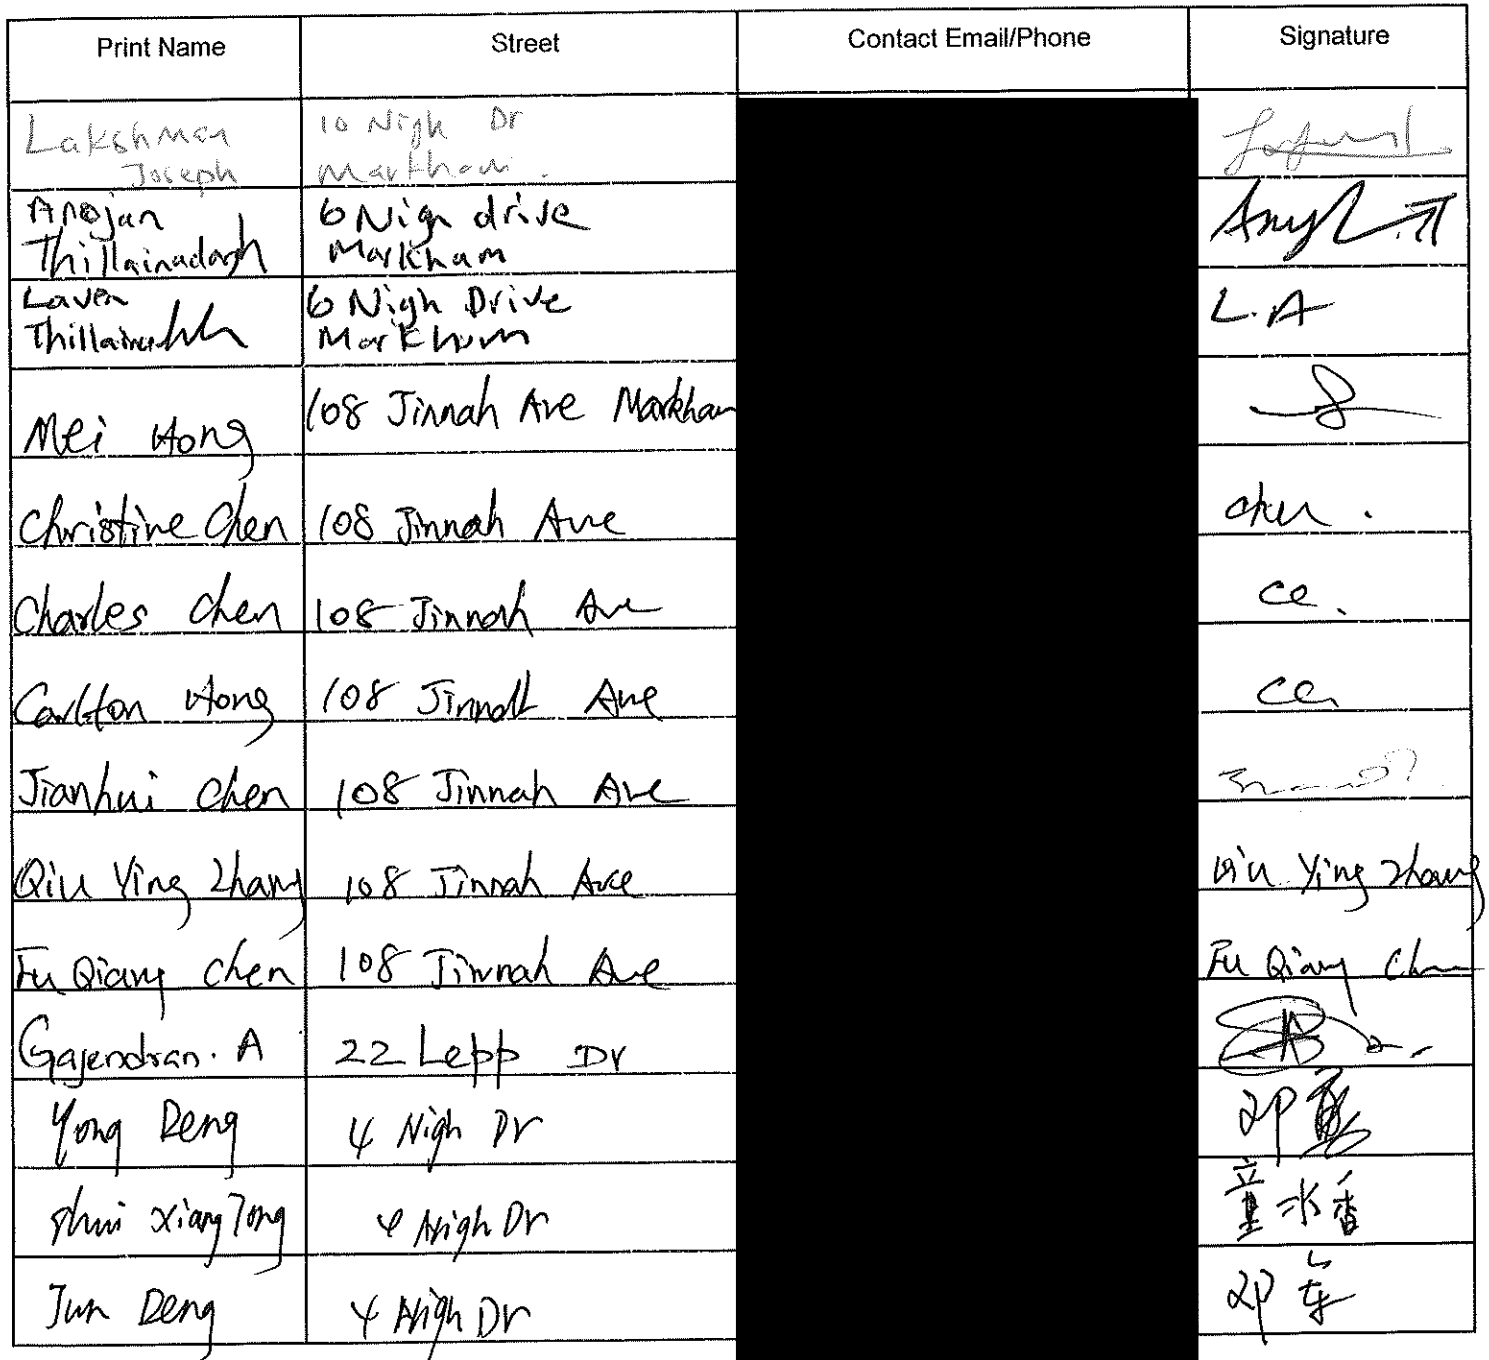 Print Name Street Contact Email/Phone Signature
Lakshman 10 Nigh Dr
Joseph Markham.
Anojan 6 Nigh drive
Markham
Laven 6 Nigh Drive
Markham L.A
Mei Hong 108 Jinnah Ave Markham
Christine Chen 108 Jinnah Ave chen .
Charles Chen 108 Jinnah Ave ce.
Carlton Hong 108 Jinnah Ave
Jianhui Chen 108 Jinnah Ave
Qiu Ying Zhang 108 Jinnah Ave Qiu Ying Zhang
Fu Qiang Chen 108 Jinnah Ave Fu Qiang Chen
Gajendran. A 22 Lepp Dr
Yong Deng 4 Nigh Dr 邓
Shui Xiang Tong 4 Nigh Dr 童水香
Jun Deng 4 Nigh Dr 邓军